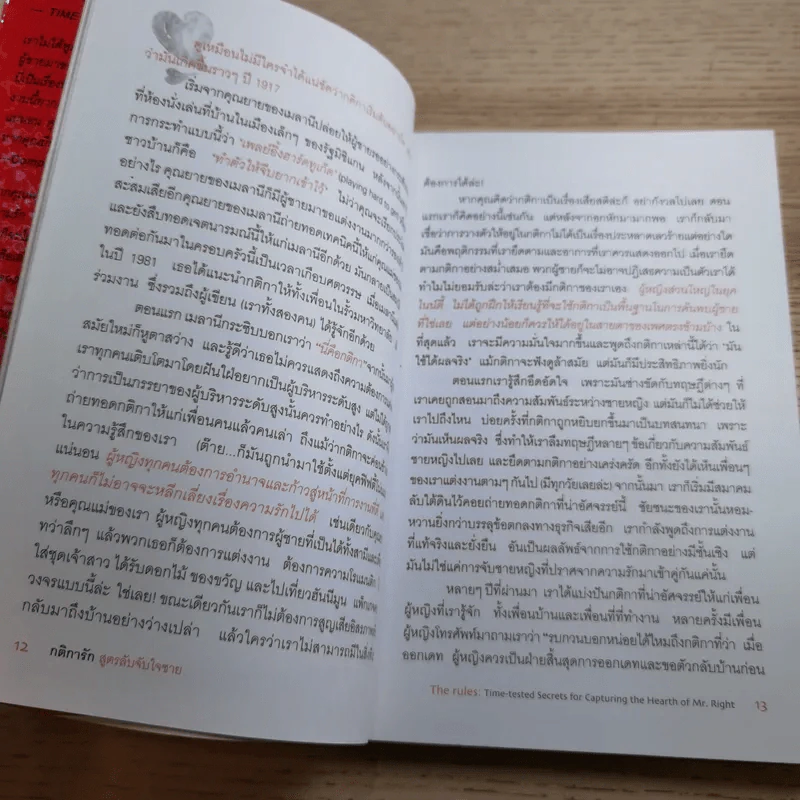 — TIME
ดูเหมือนไม่มีใครจำได้แน่ชัดว่ากติกาเริ่มต้น
ว่ามันเกิดขึ้นราวๆ ปี 1917
เริ่มจากคุณยายของเมลานีปล่อยให้ผู้ชายรออย่าง
ที่ห้องนั่งเล่นที่บ้านในเมืองเล็กๆ ของรัฐมิชิแกน หลังจากนั้น
การกระทำแบบนี้ว่า "เพลย์อิ้งฮาร์ดทูเก็ต" (playing hard to get)
ชาวบ้านก็คือ "ทำตัวให้จีบยากเข้าไว้" ไม่ว่าคุณจะเรียก
อย่างไร คุณยายของเมลานีก็มีผู้ชายมาขอแต่งงานมากกว่า
สะสมเสียอีกคุณยายของเมลานีถ่ายทอดเทคนิคนี้ให้แก่คุณแม่
และยังสืบทอดเจตนารมณ์นี้ให้แก่เมลานีอีกด้วย มันกลายเป็น
ทอดต่อกันมาในครอบครัวนี้เป็นเวลาเกือบศตวรรษ เมื่อเมลานี
ในปี 1981 เธอได้แนะนำกติกาให้ทั้งเพื่อนในรั้วมหาวิทยาลัย
ร่วมงาน ซึ่งรวมถึงผู้เขียน (เราทั้งสองคน) ได้รู้จักอีกด้วย
ตอนแรก เมลานีกระซิบบอกเราว่า "นี่คือกติกา" จากนั้น
สมัยใหม่ก็หูตาสว่าง และรู้ดีว่าเธอไม่ควรแสดงถึงความต้องการ
เราทุกคนเติบโตมาโดยฝันใฝ่อยากเป็นผู้บริหารระดับสูง แต่ไม่
ว่าการเป็นภรรยาของผู้บริหารระดับสูงนั้นควรทำอย่างไร ดังนั้น
ถ่ายทอดกติกาให้แก่เพื่อนคนแล้วคนเล่า ถึงแม้ว่ากติกาจะค่อน
ในความรู้สึกของเรา (ต๊าย...ก็มันถูกนำมาใช้ตั้งแต่ยุคฟิฟตี้
แน่นอน ผู้หญิงทุกคนต้องการอำนาจและก้าวสู่หน้าที่การงานที่ดี
ทุกคนก็ไม่อาจจะหลีกเลี่ยงเรื่องความรักไปได้ เช่นเดียวกับ
หรือคุณแม่ของเรา ผู้หญิงทุกคนต้องการผู้ชายที่เป็นได้ทั้งสามีและ
ทว่าลึกๆ แล้วพวกเธอก็ต้องการแต่งงาน ต้องการความโรแมนติก
ใส่ชุดเจ้าสาว ได้รับดอกไม้ ของขวัญ และไปเที่ยวฮันนีมูน แพ็กเกจ
วงจรแบบนี้ล่ะ ใช่เลย! ขณะเดียวกันเราก็ไม่ต้องการสูญเสียอิสรภาพ
กลับมาถึงบ้านอย่างว่างเปล่า แล้วใครว่าเราไม่สามารถมีในสิ่งที่
12 กติการัก สูตรลับจับใจชาย
ต้องการได้ล่ะ!
หากคุณคิดว่ากติกาเป็นเรื่องเสียสติล่ะก็ อย่ากังวลไปเลย ตอน
แรกเราก็คิดอย่างนี้เช่นกัน แต่หลังจากอกหักมามากพอ เราก็กลับมา
เชื่อว่าการวางตัวให้อยู่ในกติกาไม่ได้เป็นเรื่องประหลาดเลวร้ายแต่อย่างใด
มันคือพฤติกรรมที่เรายึดตามและอาการที่เราควรแสดงออกไป เมื่อเรายึด
ตามกติกาอย่างสม่ำเสมอ พวกผู้ชายก็จะไม่อาจปฏิเสธความเป็นตัวเราได้
ทำไมไม่ยอมรับล่ะว่าเราต้องมีกติกาของเราเอง ผู้หญิงส่วนใหญ่ในยุค
ไนน์ตี้ ไม่ได้ถูกฝึกให้เรียนรู้ที่จะใช้กติกาเป็นพื้นฐานในการค้นพบผู้ชาย
ที่ใช่เลย แต่อย่างน้อยก็ควรให้ได้อยู่ในสายตาของเพศตรงข้ามบ้าง ใน
ที่สุดแล้ว เราจะมีความมั่นใจมากขึ้นและพูดถึงกติกาเหล่านี้ได้ว่า 'มัน
ใช้ได้ผลจริง' แม้กติกาจะฟังดูล้าสมัย แต่มันก็มีประสิทธิภาพยิ่งนัก
ตอนแรกเรารู้สึกอึดอัดใจ เพราะมันช่างขัดกับทฤษฎีต่างๆ ที่
เราเคยถูกสอนมาถึงความสัมพันธ์ระหว่างชายหญิง แต่มันก็ไม่ได้ช่วยให้
เราไปถึงไหน บ่อยครั้งที่กติกาถูกหยิบยกขึ้นมาเป็นบทสนทนา เพราะ
ว่ามันเห็นผลจริง ซึ่งทำให้เราลืมทฤษฎีหลายๆ ข้อเกี่ยวกับความสัมพันธ์
ชายหญิงไปเลย และยึดตามกติกาอย่างเคร่งครัด อีกทั้งยังได้เห็นเพื่อนๆ
ของเราแต่งงานตามๆ กันไป (มีทุกวัยเลยล่ะ) จากนั้นมา เราก็เริ่มมีสมาคม
ลับใต้ดินไว้คอยถ่ายทอดกติกาที่น่าอัศจรรย์นี้ ชัยชนะของเรานั้นหอม-
หวานยิ่งกว่าบรรลุข้อตกลงทางธุรกิจเสียอีก เรากำลังพูดถึงการแต่งงาน
ที่แท้จริงและยั่งยืน อันเป็นผลลัพธ์จากการใช้กติกาอย่างมีชั้นเชิง แต่
มันไม่ใช่แค่การจับชายหญิงที่ปราศจากความรักมาเข้าคู่กันแค่นั้น
หลายๆ ปีที่ผ่านมา เราได้แบ่งปันกติกาที่น่าอัศจรรย์ให้แก่เพื่อน
ผู้หญิงที่เรารู้จัก ทั้งเพื่อนบ้านและเพื่อนที่ที่ทำงาน หลายครั้งมีเพื่อน
ผู้หญิงโทรศัพท์มาถามเราว่า "รบกวนบอกหน่อยได้ไหมถึงกติกาที่ว่า เมื่อ
ออกเดท ผู้หญิงควรเป็นฝ่ายสิ้นสุดการออกเดทและขอตัวกลับบ้านก่อน
The rules: Time-tested Secrets for Capturing the Hearth of Mr. Right 13